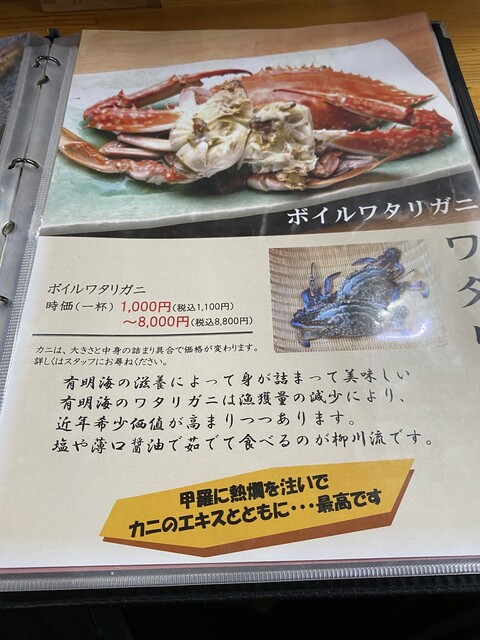 ボイルワタリガニ
ワタリ
ボイルワタリガニ
時価(一杯) 1,000円(税込1,100円)
～8,000円(税込8,800円)
カニは、大きさと中身の詰まり具合で価格が変わります。
詳しくはスタッフにお尋ねください。
有明海の滋養によって身が詰まって美味しい
有明海のワタリガニは漁獲量の減少により、
近年希少価値が高まりつつあります。
塩や薄口醤油で茹でて食べるのが柳川流です。
甲羅に熱燗を注いで
カニのエキスとともに･･･最高です